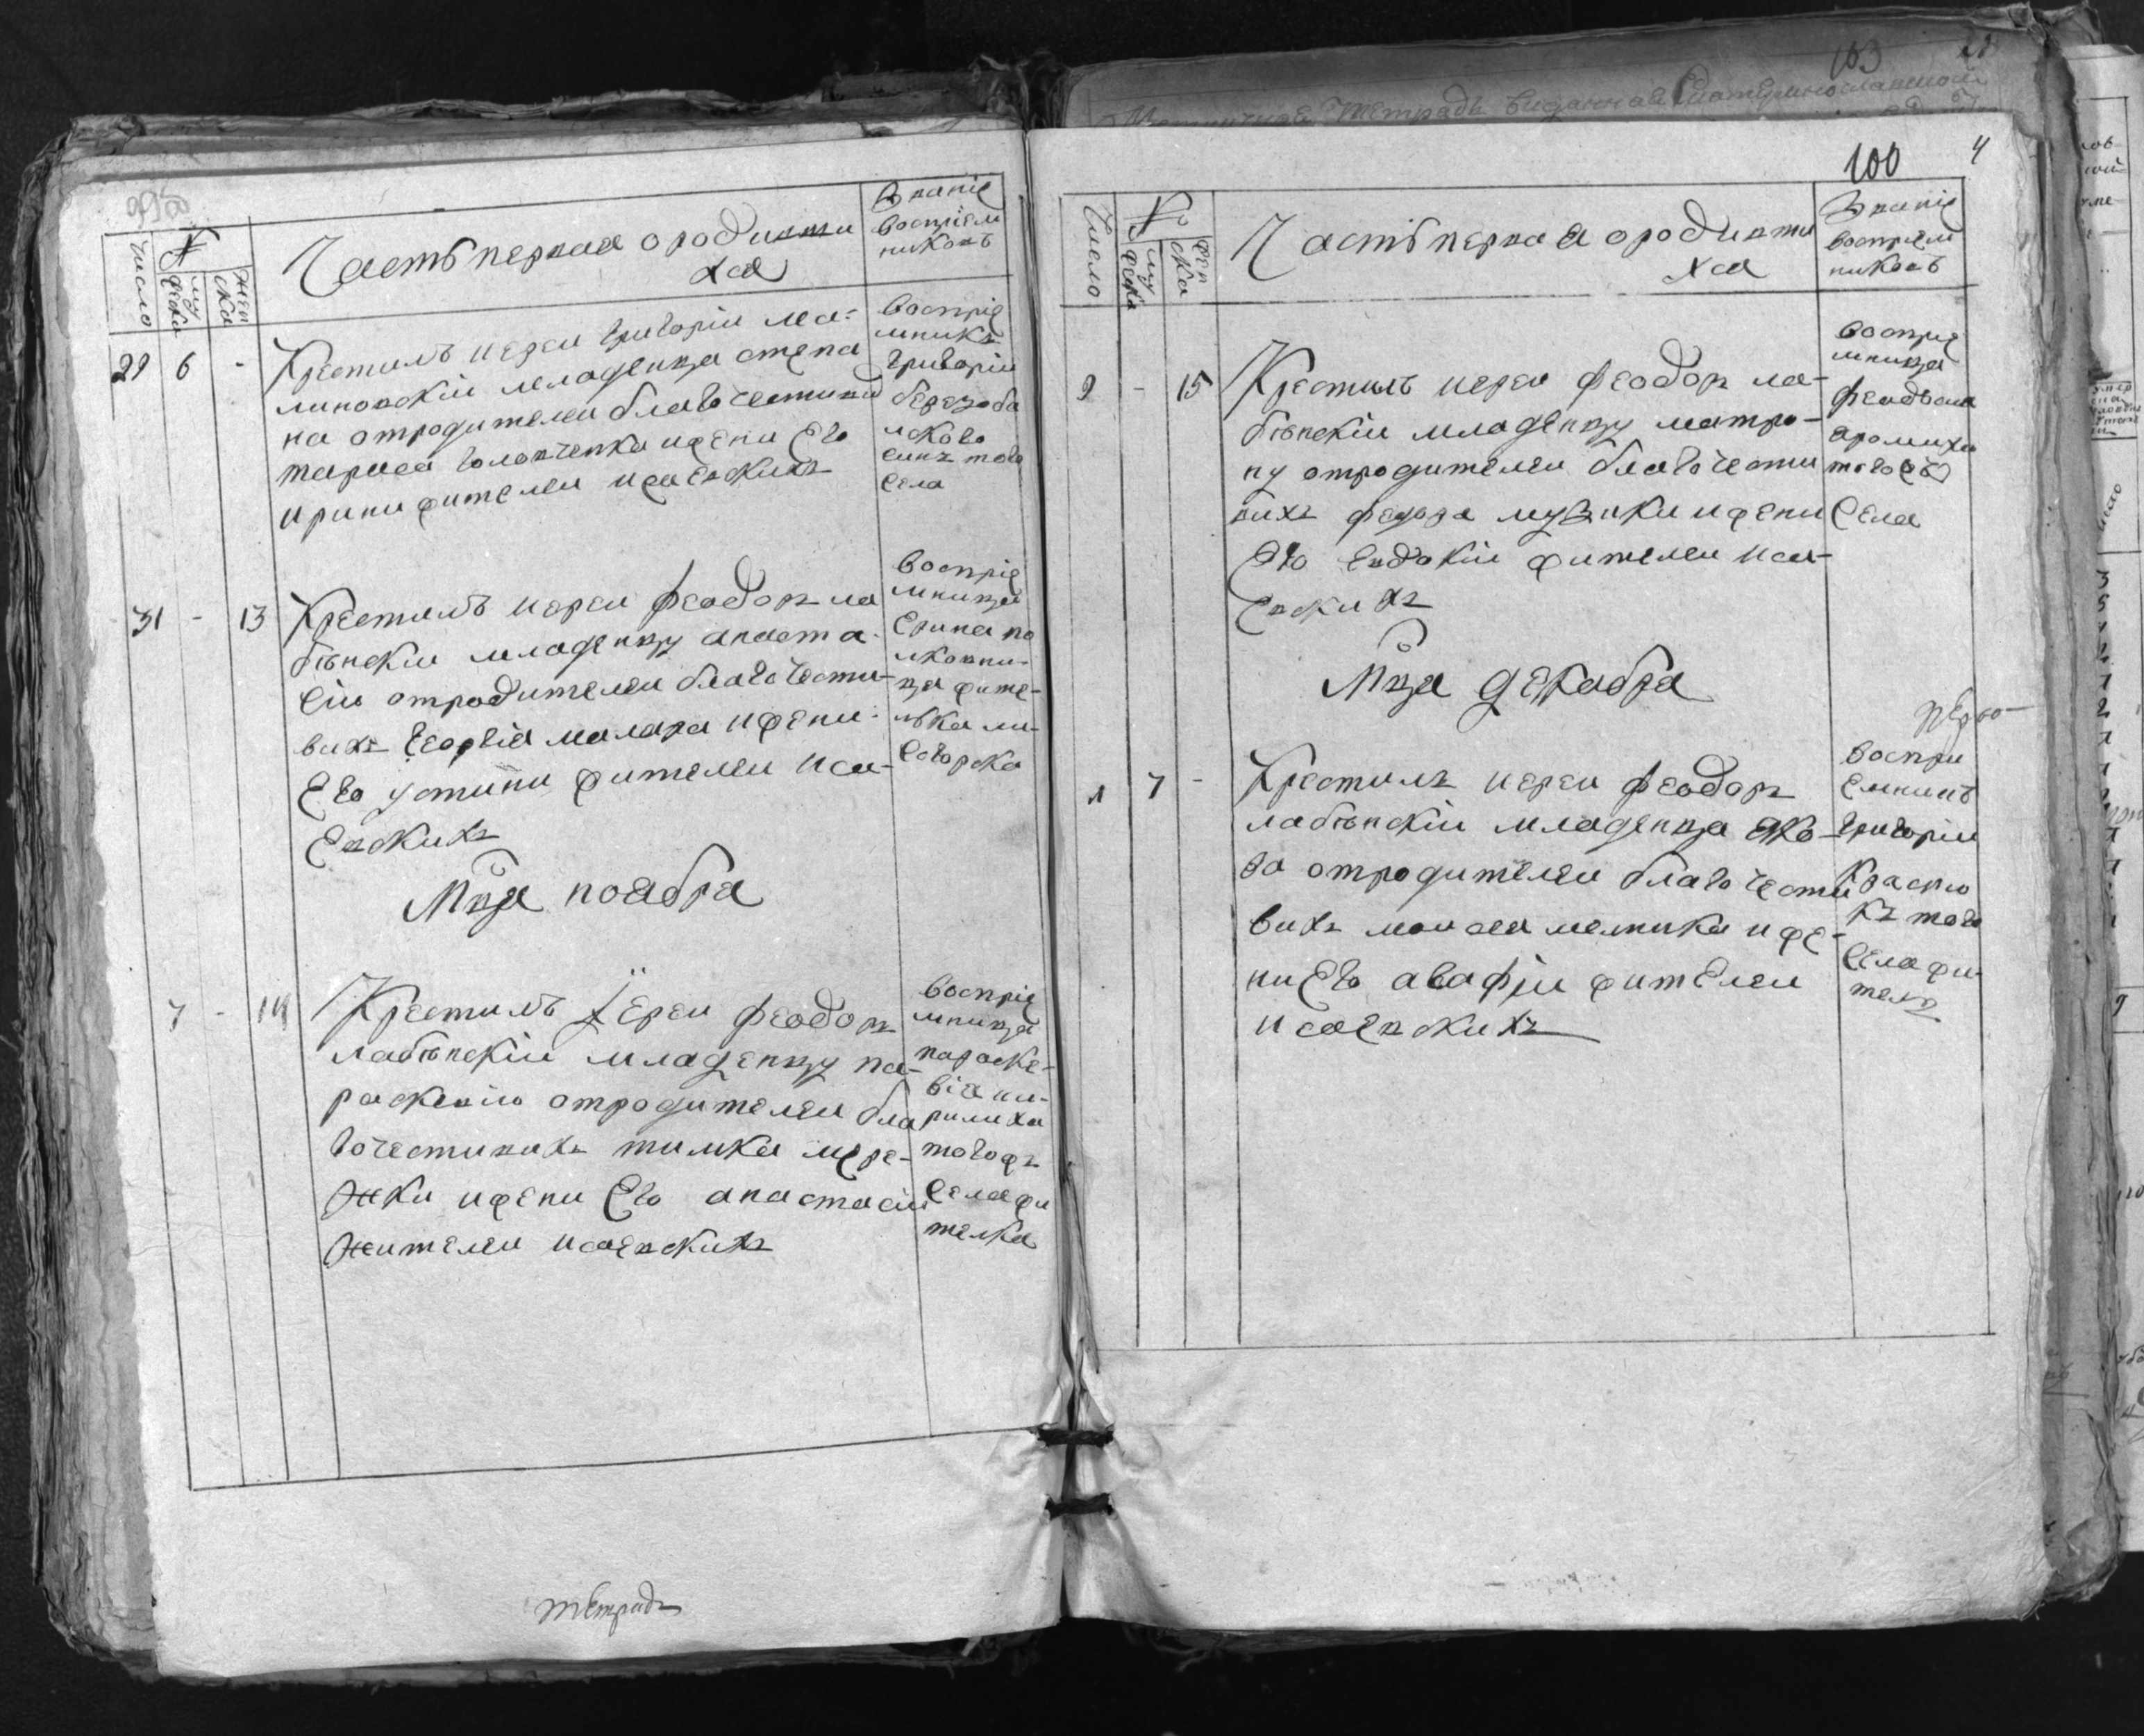 Число
№
му
феска
жен
ска
Часть первая о родивши
хся
Звание
восприем
никовъ
29 6 -
Крестилъ иереи григории ма-
линовскии младенца степа
на отродителеи благочестиви
тараса головченка ижени его
ирини жителеи исаевскихъ
восприе
мникъ
григории
березоба
лково
синъ того
села
31 - 13
Крестилъ иереи феодоръ ла
бѣнскии младенцу анаста-
сию отродителеи благочести-
вихъ георгия маляра ижени
его устини жителеи иса-
евскихъ
восприе
мница
ерина по
лковни-
ца жите-
лька ли-
согорска
Мца ноября
7 - 14
Крестилъ їереи феодоръ
лабѣнскии младенцу па-
раскевию отродителеи бла
гочестивихъ тимка мере-
жки ижени его анастасии
жителеи исаевскихъ
восприе
мница
параске-
вия ки-
рилиха
тогожъ
села жи
телка
тетрадь
103
Тетрадь
100
4
Число
№
му
феска
жен
ска
Часть первая о родивши
хся
Звание
восприем
никовъ
9 - 15
Крестилъ иереи феодоръ ла-
бѣнскии младенцу матро-
ну отродителеи благочести
вихъ федора музики ижени
его евдокии жителеи иса-
евскихъ
восприе
мница
феодосия
яромиха
тогожъ
села
Мца декабря
1 7 -
Крестилъ иереи феодоръ
лабѣнскии младенца яко-
ва отродителеи благочести
вихъ моисея мелника ижe-
ни его агафии жителеи
исаевскихъ
воспри
емникъ
григории
красно
къ того
села жи-
тель